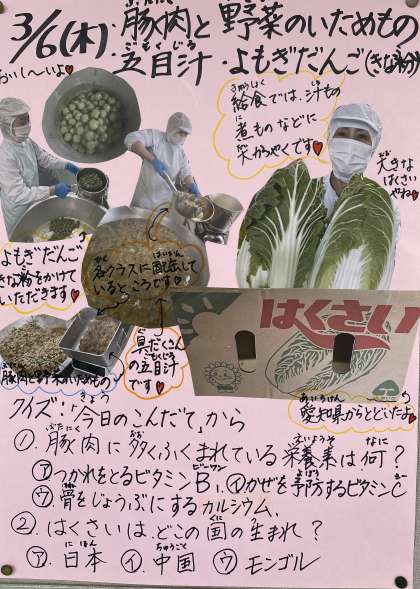 3/6(木)・豚肉と野菜のいためもの
・五目汁・よもぎだんご(きな粉)
おい〜しいよ♥
給食では、汁もの
煮ものなどに
大かつやくです♥
大きな
はくさい
やね♥
よもぎだんご
きな粉をかけて
いただきます♥
各クラスに配缶して
いるところです♥
具だくさん
の五目汁
です♥
豚肉と野菜のいためもの
はくさい
愛知県からとどいたよ
クイズ・「今日のこんだて」から
①. 豚肉に多くふくまれている栄養素は何?
㋐つかれをとるビタミンB1、㋑かぜを予防するビタミンC
㋒骨をじょうぶにするカルシウム、
② はくさいは、どこの国の生まれ?
㋐. 日本 ㋑. 中国 ㋒ モンゴル